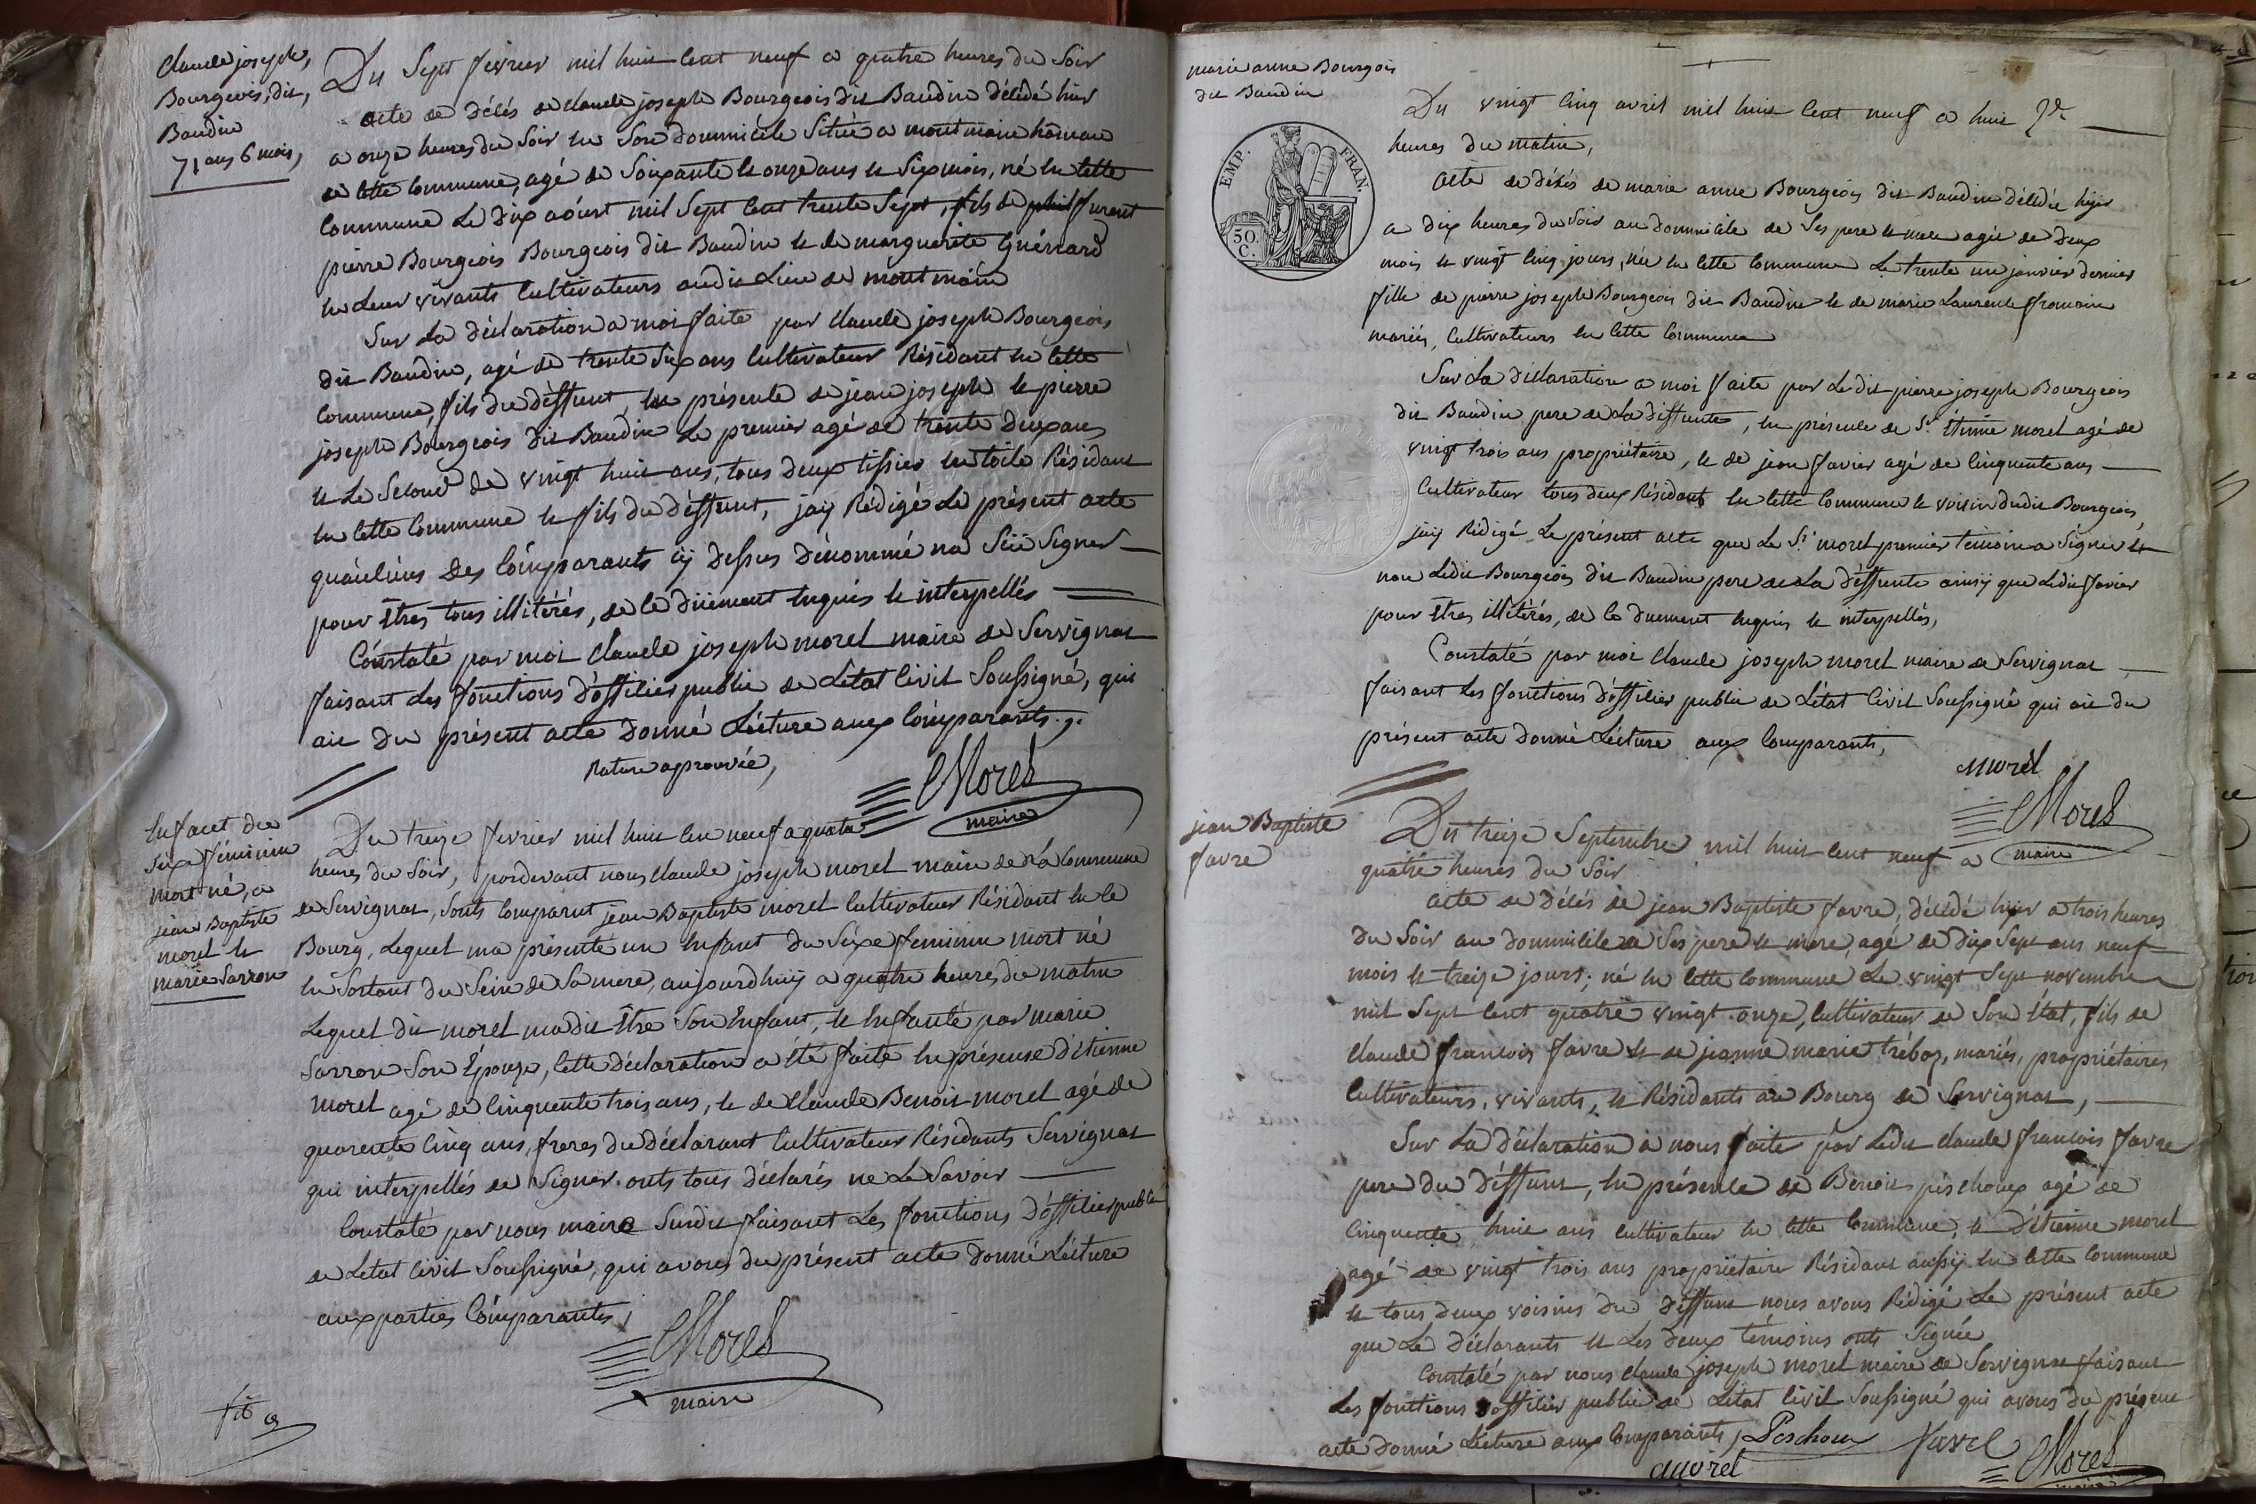 Claude joseph,
Bourgeois, dit,
Baudin
71 ans 6 mois,
Du Sept fevrier mil huit Cent neuf a quatre heures du Soir
acte de décés de Claude joseph Bourgeois dit Baudin décédé hier
a onze heures du Soir en Son dommicile Situé a montmain hameau
de cette Commune, agé de Soixante et onze ans et Six mois, né en cette
Commune Le dix aóust mil Sept Cent trente Sept, fils de furent
pierre Bourgeois Bourgeois dit Baudin et de marguerite Guénard
en Leur vivants Cultivateurs audit Lieu de montmain
Sur La déclaration a moi faite par Claude joseph Bourgeois
dit Baudin, agé de trente Six ans Cultivateur Résidant en cette
Commune, fils du déffunt, en présence de jean joseph et pierre
joseph Bourgeois dit Baudin Le premier agé de trente deux ans
et Le Second de vingt huit ans, tous deux tissier en toile Résidant
en cette Commune et fils du déffunt, j'aÿ Rédigé Le présent acte
qu'aucuns des Comparants cÿ dessus dénommé na Scü Signer
pour êtres tous illitérés, de ce düement enquis et interpellés
Constaté par moi Claude joseph morel maire de Servignat
faisant Les fonctions d'officier public de L'état Civil Soussigné, qui
aie du présent acte donné Lécture aux Comparants.
Rature aprouvée,
Morel
maire
Enfant du
Sexe féminin
mort né, a
jean Baptiste
morel et
marie Sarron
Du treize fevrier mil huit Cen neuf a quatre
heures du Soir, pardevant nous Claude joseph morel maire de La Commune
de Servignat, Sonts Comparut jean Baptiste morel Cultivateur Résidant en ce
Bourg, Lequel ma présenté un Enfant du Sexe feminin mort né
en Sortant du Sein de Sa mere, aujourdhuÿ a quatre heures du matin
Lequel dit morel ma dit être Son Enfant, et Enfanté par marie
Sarron Son Epouze, cette déclaration a été faite en présence d'étienne
morel agé de Cinquente trois ans, et de Claude Benoit morel agé de
quarente Cinq ans, freres du déclarant Cultivateur Résidants Servignat
qui interpellés de Signer onts tous déclarés ne Le Savoir
Constaté par nous maire Susdit faisant Les fonctions d'officier public
de L'état Civil Soussigné, qui avons du présent acte donné Lécture
aux parties Comparantes,
Morel
maire
marie anne Bourgois
dit Baudin
EMP. FRAN.
50. C.
Du vingt Cinq avril mil huit Cent neuf a huit
heures du matin,
acte de décés de marie anne Bourgeois dit Baudin décédée hÿer
a dix heures du Soir au dommicile de Ses pere et mere agée de deux
mois et vingt Cinq jours, née en cette Commune Le trente un janvier dernier
fille de pierre joseph Bourgeois dit Baudin et de marie Laurence fromain
mariés, Cultivateurs en cette Commune
Sur La déclaration a moi faite par Le dit pierre joseph Bourgeois
dit Baudin pere de La déffunte, en présence de Sr. étienne morel agé de
vingt trois ans propriétaire, et de jean favier agé de Cinquente ans
Cultivateur tous deux Résidants en cette Commune et voisin dudit Bourgeois,
jaÿ Rédigé Le présent acte que Le Sr. morel premier témoin a Signé et
non Ledit Bourgeois dit Baudin pere de La déffunte ainsÿ que Ledit favier
pour êtres illitérés, de ce duement enquis et interpellés,
Constaté par moi Claude joseph morel maire de Servignat
faisant Les fonctions d'officier public de L'état Civil Soussigné qui aie du
présent acte donné Lécture aux Comparants,
morel
Morel
maire
jean Baptiste
favre
Du treize Septembre mil huit Cent neuf a
quatre heures du Soir
acte de décés de jean Baptiste favre, décédé hier a trois heures
du Soir au dommicile de Ses pere et mere, agé de dix Sept ans neuf
mois et treize jours; né en cette Commune Le vingt Sept novembre
mil Sept Cent quatre vingt onze, Cultivateur de Son état, fils de
Claude francois favre et de jeanne marie tréboz, mariés, propriétaires
Cultivateurs, vivants, et Résidants au Bourg de Servignat,
Sur La déclaration a nous faite par Ledit Claude francois favre
pere du déffunt, en présence de Benoit péschoux agé de
Cinquente huit ans Cultivateur en cette Commune, et d'étienne morel
agé de vingt trois ans propriétaire Résidant aussÿ en cette Commune
et tous deux voisins du déffunt nous avons Rédigé Le présent acte
que Le déclarants et Les deux témoins onts Signée
Constaté par nous Claude joseph morel maire de Servignat faisant
Les fonctions d'officier public de L'état Civil Soussigné qui avons du présent
acte donné Lécture aux Comparants, Peschoux favre
morel Morel
maire